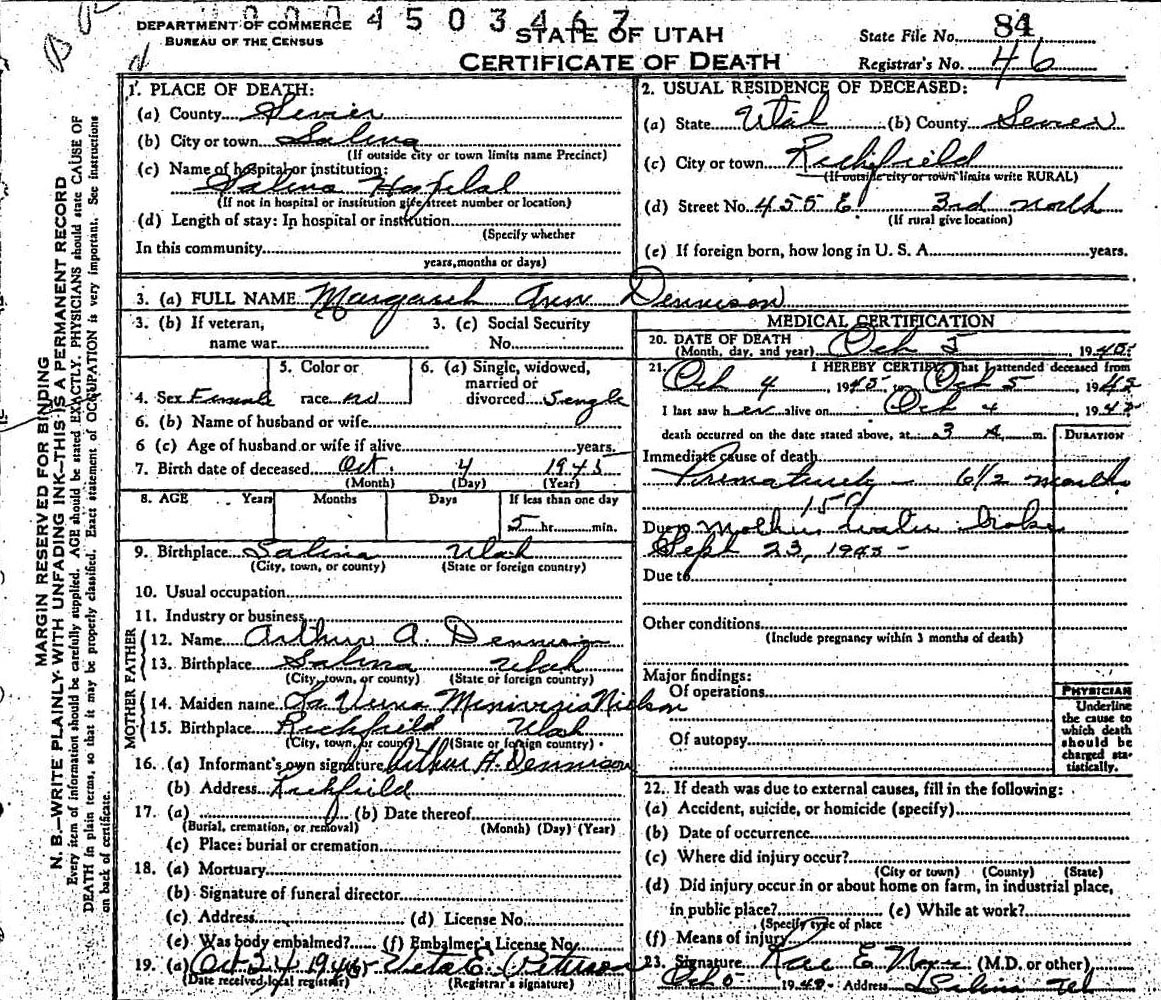 0004503467
DEPARTMENT OF COMMERCE
BUREAU OF THE CENSUS
STATE OF UTAH
CERTIFICATE OF DEATH
State File No. 84
Registrar's No. 46
MARGIN RESERVED FOR BINDING
N. B.—WRITE PLAINLY WITH UNFADING INK—THIS IS A PERMANENT RECORD
Every item of information should be carefully supplied. AGE should be stated EXACTLY. PHYSICIANS should state CAUSE OF
DEATH in plain terms, so that it may be properly classified. Exact statement of OCCUPATION is very important. See instructions
on back of certificate.
1. PLACE OF DEATH:
(a) County Sevier
(b) City or town Salina
(If outside city or town limits name Precinct)
(c) Name of hospital or institution:
Salina Hospital
(If not in hospital or institution give street number or location)
(d) Length of stay: In hospital or institution
(Specify whether
In this community
years, months or days)
2. USUAL RESIDENCE OF DECEASED:
(a) State Utah (b) County Sevier
(c) City or town Richfield
(If outside city or town limits write RURAL)
(d) Street No. 455 E 3rd North
(If rural give location)
(e) If foreign born, how long in U. S. A. years.
3. (a) FULL NAME Margaret Ann Dennison
3. (b) If veteran, 3. (c) Social Security
name war No.
5. Color or 6. (a) Single, widowed,
married or
4. Sex Female race divorced Single
6. (b) Name of husband or wife
6 (c) Age of husband or wife if alive years.
7. Birth date of deceased Oct. 4 1945
(Month) (Day) (Year)
8. AGE Years Months Days If less than one day
5 hr. min.
9. Birthplace Salina Utah
(City, town, or county) (State or foreign country)
10. Usual occupation
11. Industry or business
FATHER
12. Name Arthur A. Dennison
13. Birthplace Salina Utah
(City, town, or county) (State or foreign country)
MOTHER
14. Maiden name La Verna Nielson
15. Birthplace Richfield Utah
(City, town, or county) (State or foreign country)
16. (a) Informant's own signature Arthur A. Dennison
(b) Address Richfield
17. (a) (b) Date thereof
(Burial, cremation, or removal) (Month) (Day) (Year)
(c) Place: burial or cremation
18. (a) Mortuary
(b) Signature of funeral director
(c) Address (d) License No.
(e) Was body embalmed? (f) Embalmer's License No.
19. (a) Oct 24 1945 (b) Veta E. Peterson
(Date received local registrar) (Registrar's signature)
MEDICAL CERTIFICATION
20. DATE OF DEATH
(Month, day, and year) Oct 5 1945
21. I HEREBY CERTIFY, That I attended deceased from
Oct 4, 1945 to Oct 5, 1945
I last saw her alive on Oct 4, 1945
death occurred on the date stated above, at 3 A. m. DURATION
Immediate cause of death
Prematurely - 6 1/2 months
159
Due to Mothers water broke
Sept 23, 1945 -
Due to
Other conditions
(Include pregnancy within 3 months of death)
Major findings:
Of operations
Of autopsy
PHYSICIAN
Underline
the cause to
which death
should be
charged sta-
tistically.
22. If death was due to external causes, fill in the following:
(a) Accident, suicide, or homicide (specify)
(b) Date of occurrence
(c) Where did injury occur?
(City or town) (County) (State)
(d) Did injury occur in or about home on farm, in industrial place,
in public place? (e) While at work?
(Specify type of place
(f) Means of injury
23. Signature Rae E (M.D. or other)
Oct 5 1945 Address Salina Ut